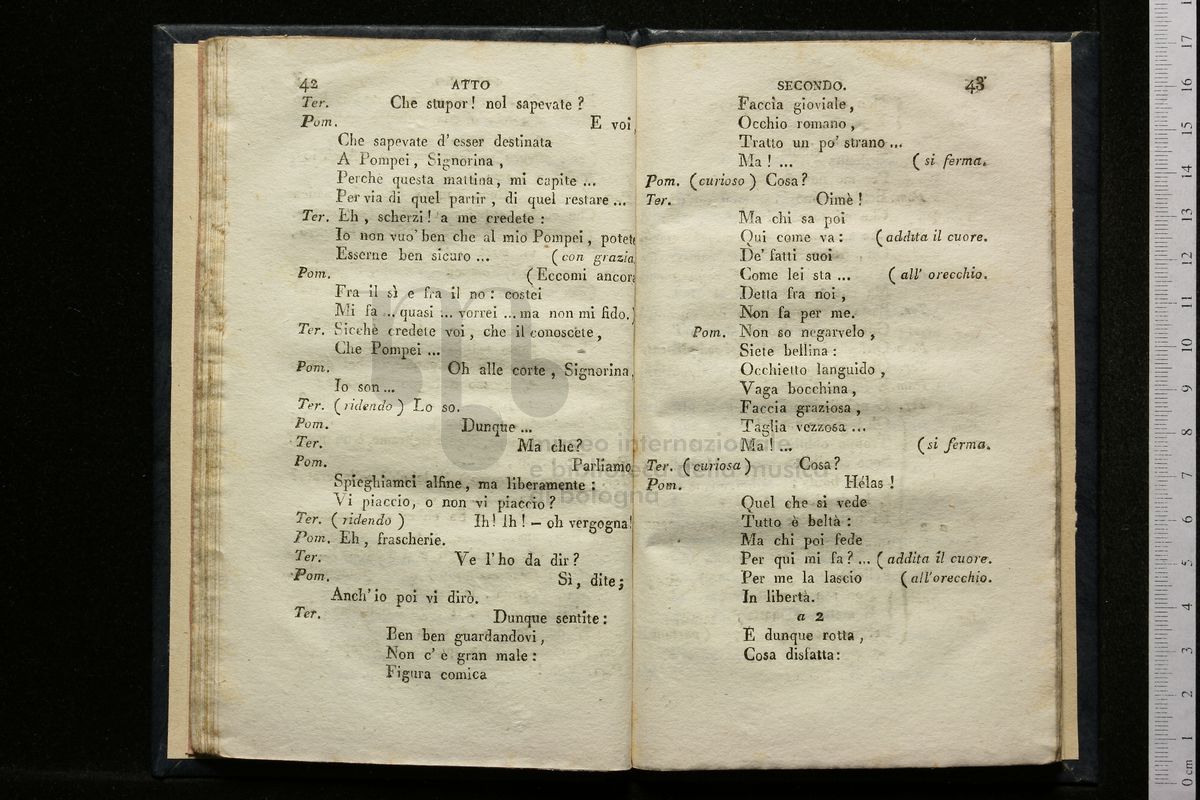 42 ATTO
Ter. Che stupor! nol sapevate?
Pom. E voi,
Che sapevate d'esser destinata
A Pompei, Signorina,
Perchè questa mattina, mi capite ...
Per via di quel partir, di quel restare ...
Ter. Eh, scherzi! a me credete:
Io non vuo' ben che al mio Pompei, potete
Esserne ben sicuro ... (con grazia
Pom. (Eccomi ancora
Fra il sì e fra il no: costei
Mi fa ... quasi ... vorrei ... ma non mi fido.)
Ter. Sicchè credete voi, che il conoscete,
Che Pompei ...
Pom. Oh alle corte, Signorina,
Io son ...
Ter. (ridendo) Lo so.
Pom. Dunque ...
Ter. Ma che?
Pom. Parliamo,
Spieghiamci alfine, ma liberamente:
Vi piaccio, o non vi piaccio?
Ter. (ridendo) Ih! Ih! — oh vergogna!
Pom. Eh, frascherie.
Ter. Ve l'ho da dir?
Pom. Sì, dite;
Anch'io poi vi dirò.
Ter. Dunque sentite:
Ben ben guardandovi,
Non c'è gran male:
Figura comica
SECONDO. 43
Faccia gioviale,
Occhio romano,
Tratto un po' strano ...
Ma! ... (si ferma.
Pom. (curioso) Cosa?
Ter. Oimè!
Ma chi sa poi
Qui come va: (addita il cuore.
De' fatti suoi
Come lei sta ... (all' orecchio.
Detta fra noi,
Non fa per me.
Pom. Non so negarvelo,
Siete bellina:
Occhietto languido,
Vaga bocchina,
Faccia graziosa,
Taglia vezzosa ...
Ma! ... (si ferma.
Ter. (curiosa) Cosa?
Pom. Hélas!
Quel che si vede
Tutto è beltà:
Ma chi poi fede
Per qui mi fa? ... (addita il cuore.
Per me la lascio (all'orecchio.
In libertà.
a 2
È dunque rotta,
Cosa disfatta:
museo internazionale
e biblioteca della musica
di bologna
0 cm 1 2 3 4 5 6 7 8 9 10 11 12 13 14 15 16 17